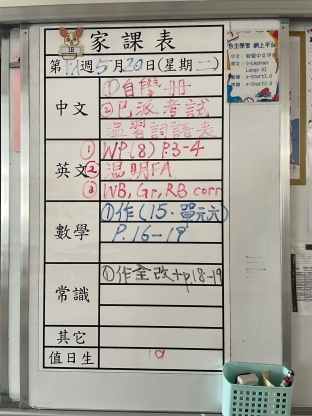 家課表
第17週5月20日(星期二)
中文
①自學冊
②已派考試
溫習詞語表
英文
① WP(8) P.3-4
② 溫明FA
③ WB, Gr, RB corr
數學
①作(15.單元六)
P.16-19
常識
①作全改+p.18-19
其它
值日生
19
自主學習 網上平台